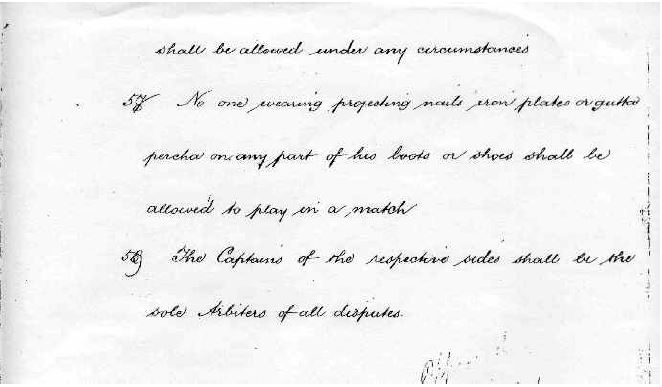 shall be allowed under any circumstances
57 No one wearing projecting nails iron plates or gutta
percha on any part of his boots or shoes shall be
allowed to play in a match
58 The Captains of the respective sides shall be the
sole Arbiters of all disputes.